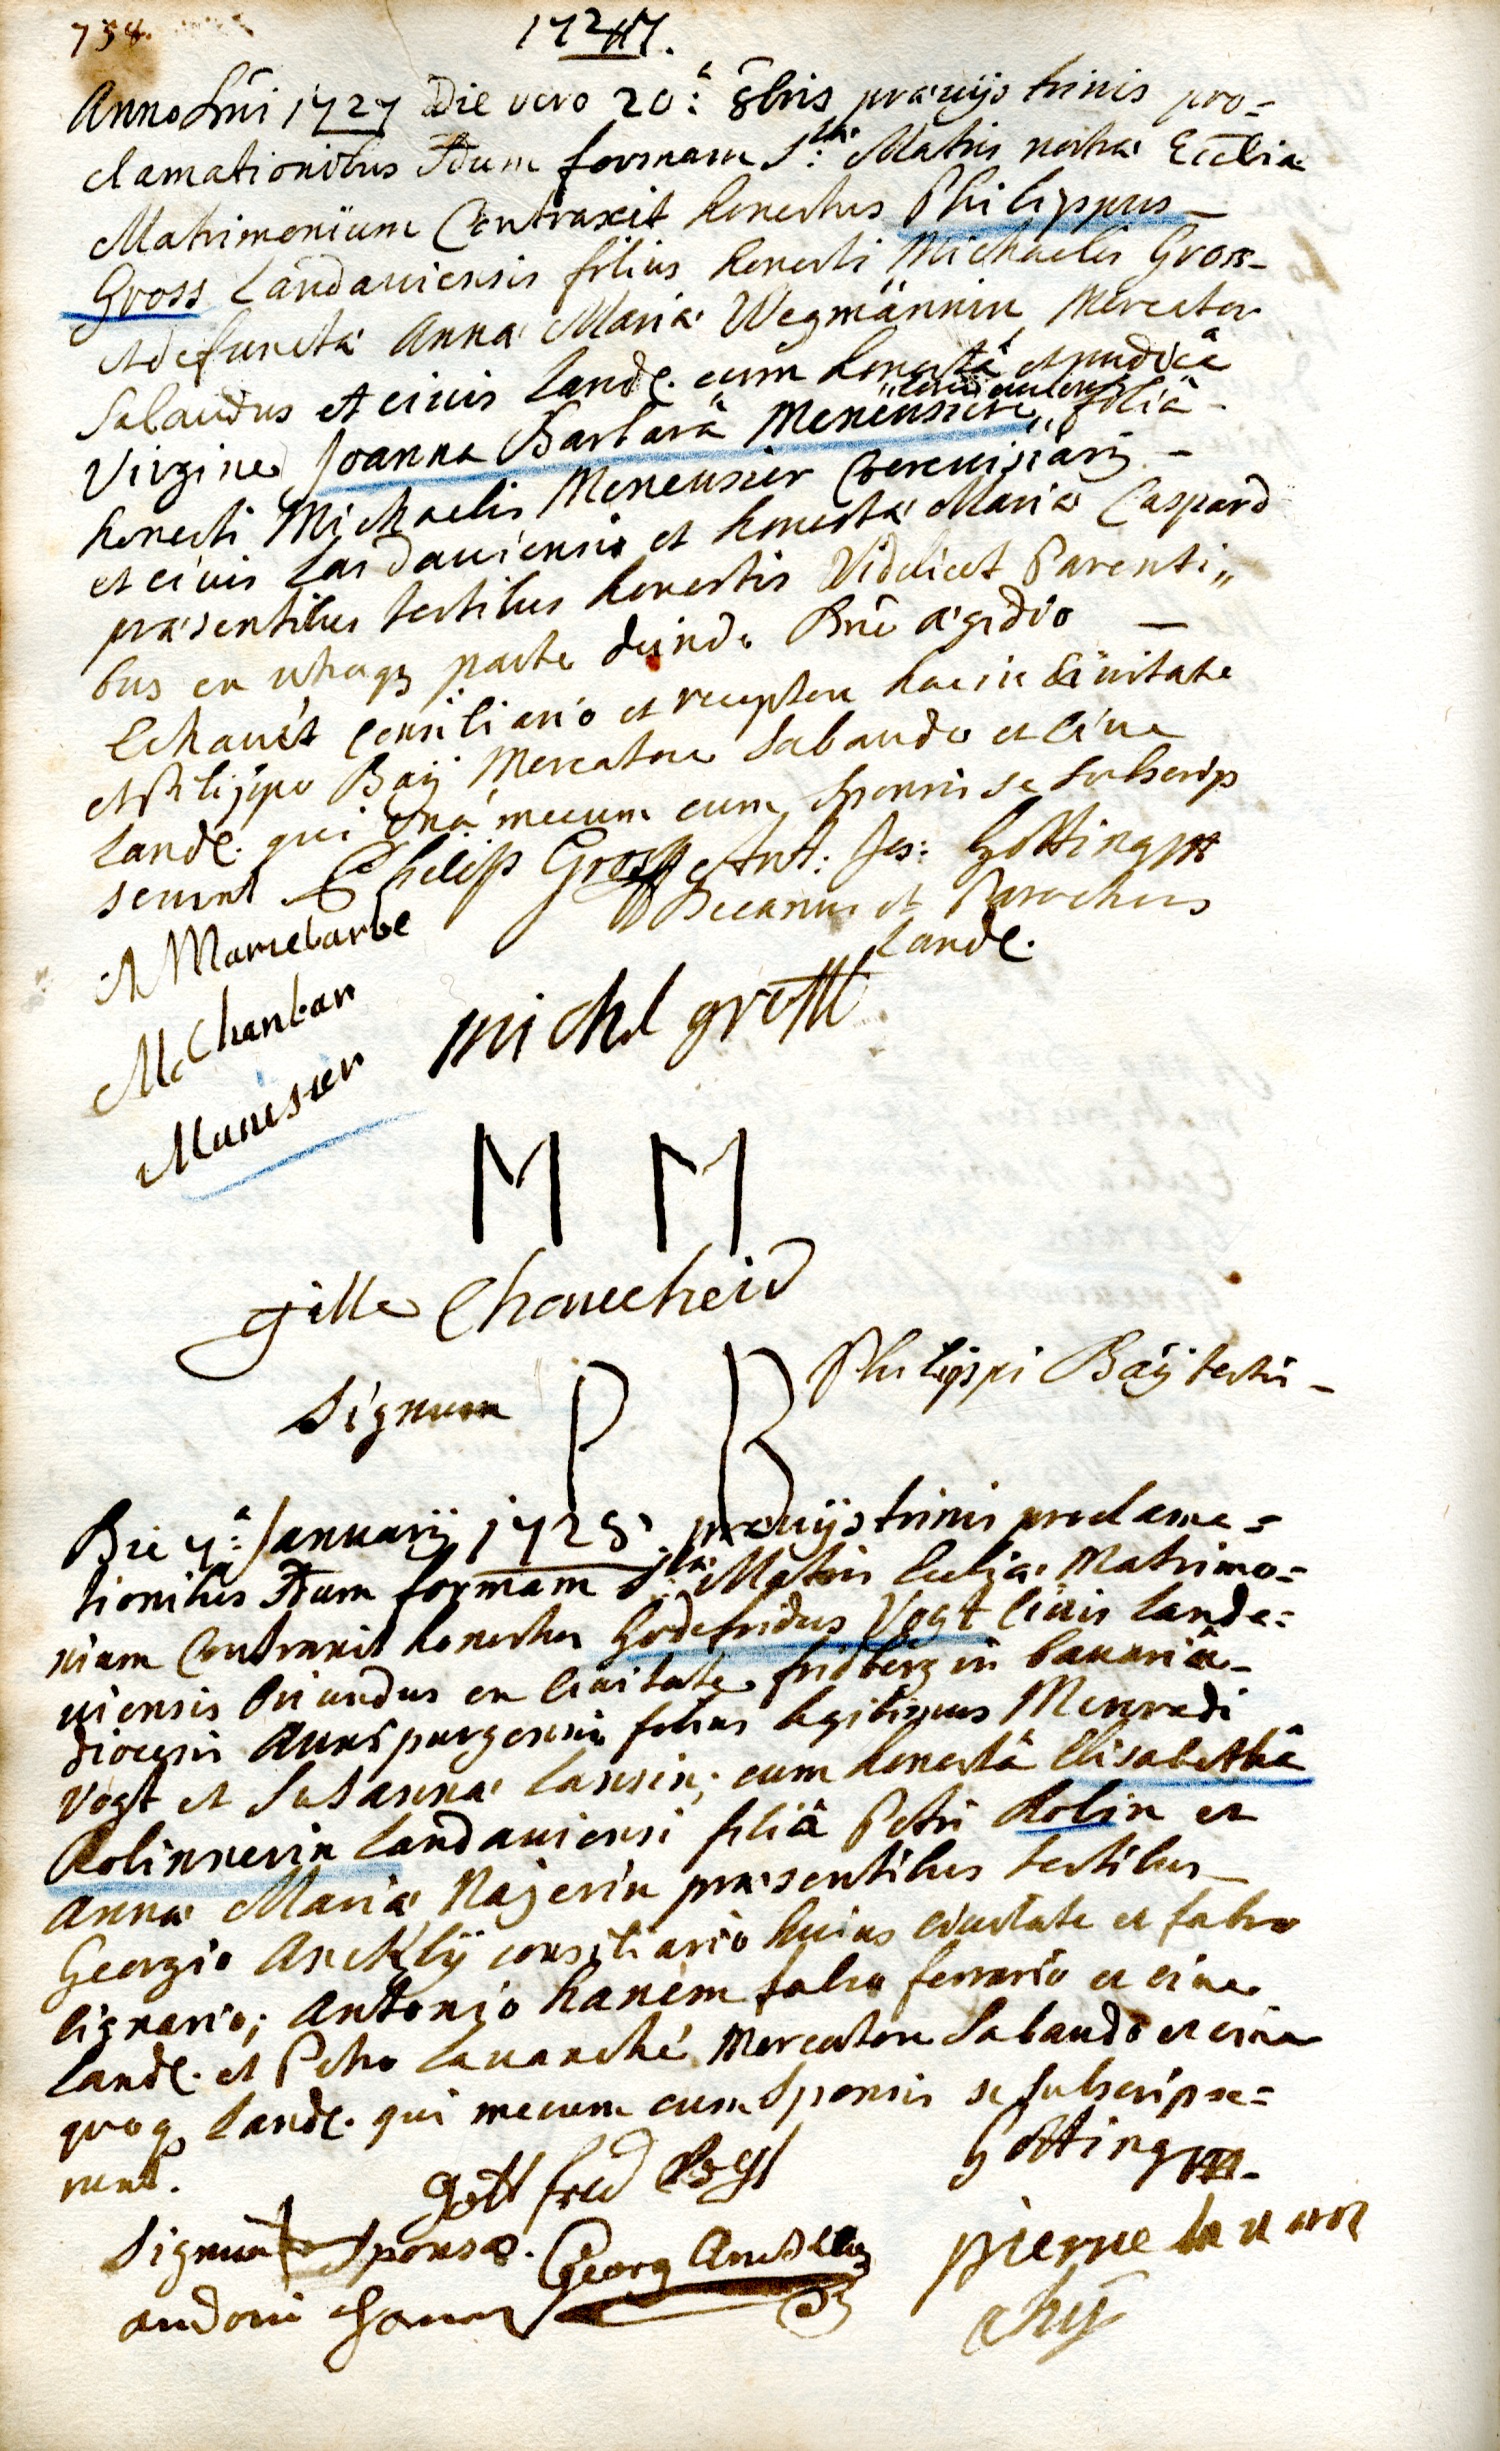 738.
1727.
Anno Dni 1727 Die vero 20.â 8bris prævijs trinis pro=
clamationibus Sdum formam S:tæ Matris nostræ Ecclia
Matrimonium Contraxit honestus Philippus
Gross Landaviensis filius honesti Michaelis Gross
et defunctæ Annæ Mariæ Wegmännin Mercator
Sabaudus et civis Land. cum honestâ et pudicâ
Virgine Joanna Barbarâ Meneusiere filiâ
honesti Michaelis Meneusier Cerevisiarij
et civis Landaviensis et honestæ Mariæ Caspard
præsentibus testibus honestis Videlicet Parenti„
bus ex utraq parte deinde Dno Ægidio
Consiliario et receptore hac in Civitate
et Philippo Baÿ Mercatore Sabaudo et Cive
Land. qui unâ mecum cum sponsis se subscrip
serunt Philip Gross Ant: Jos: Götting
Decanus et Parochus
Land.
Mariebarbe
Manesier
michel gross
M M
gille Chaucheid
Signum P B Philippi Baÿ testis
Die 7.â Januarij 1728 prævijs trinis proclama=
tionibus Sdum formam S:tæ Matris Eccliæ Matrimo=
nium Contraxit honestus Godefridus Vogt Civis Landa=
viensis Oriundus ex Civitate fridberg in bavariâ
diocesis Augspurgensis filius legitimus Menradi
Vogt et Susannæ Lansin; cum honestâ Elisabethâ
Rolinnerin Landaviensi filiâ Petri Rolin et
Annæ Mariæ Majerin præsentibus testibus
Georgio Anckly consiliario huius civitate et fabro
lignario; Antonio hanem fabro ferrario et cive
Land. et Petro Lavanché Mercatore Sabaudo et cive
quoq Land. qui mecum cum Sponsis se subscripse=
runt.
gottfred Vogt Götting
Signum Sponsæ. Georg pierre
andoni